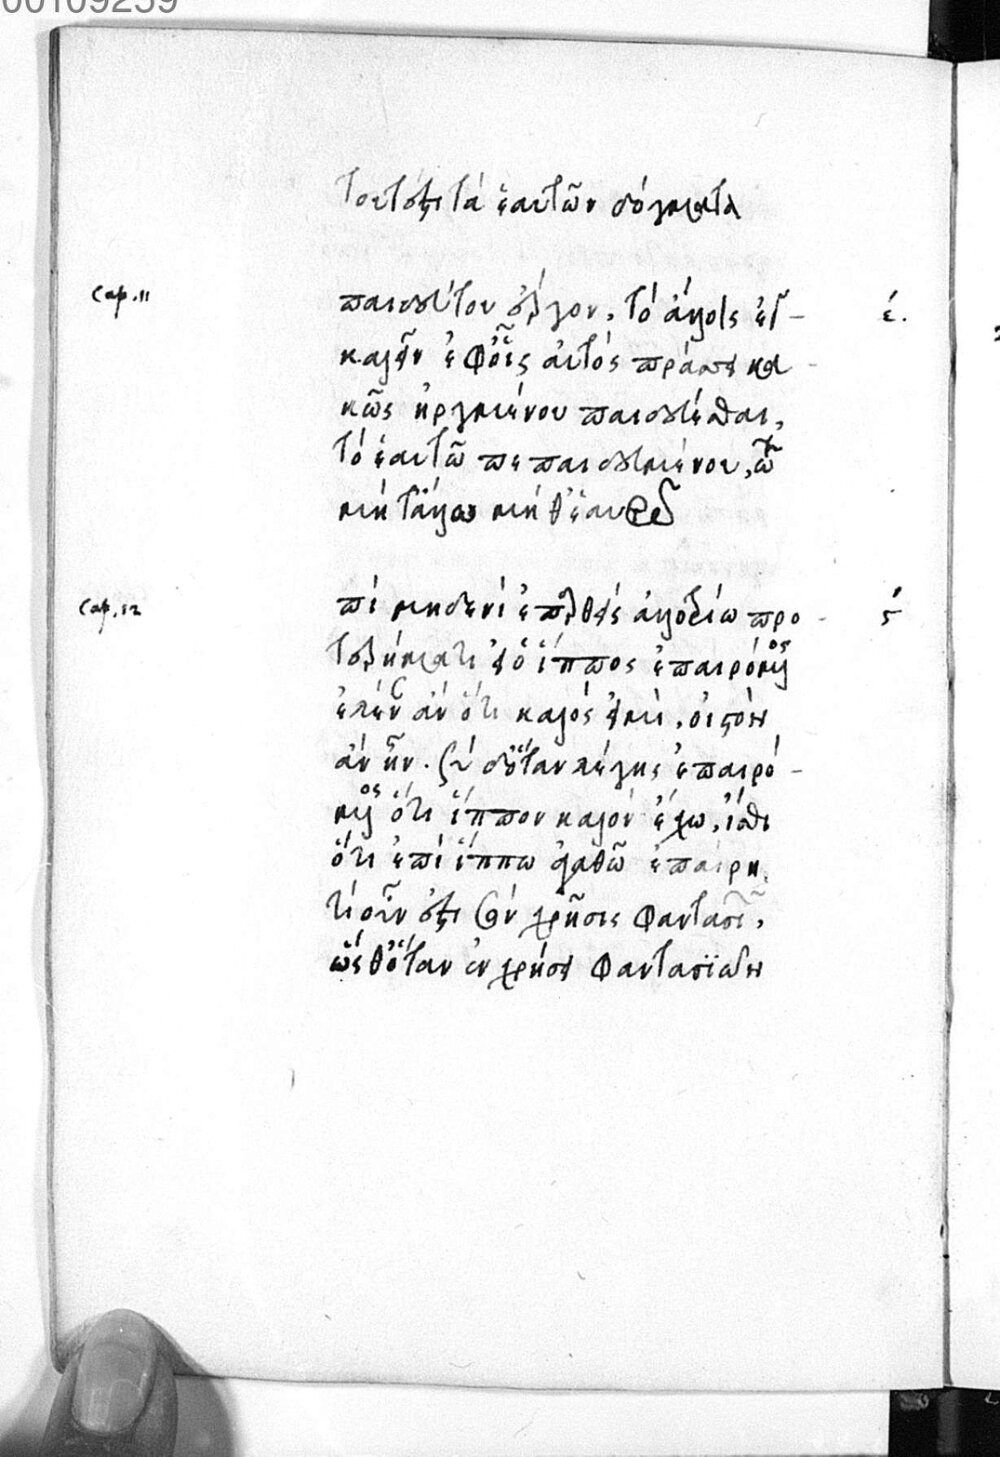 00109259
τουτέστι τὰ ἑαυτῶν δόγματα
Cap. 11
παιδεύτου ἔργον, τὸ ἄλλοις ἐγ-
έ.
καλεῖν ἐφ' οἷς αὐτὸς πράσσει κα-
κῶς ἠργμένου παιδεύεσθαι,
τὸ ἑαυτῶ πεπαιδευμένου,
μὴ τἄλλω μὴ θ' ἑαυτῶ
Cap. 12
πὶ μηδενὶ ἐπαρθῇς ἀλλοτρίω προ-
ς
τερήματι εἰ ὁ ἵππος ἐπαιρόμενος
ἔλεγεν ἂν ὅτι καλός εἰμι, οἰστὸν
ἂν ἦν. σὺ δ' ὅταν λέγης ἐπαιρό-
μενος ὅτι ἵππον καλὸν ἔχω, ἴσθι
ὅτι ἐπὶ ἵππω ἀγαθῶ ἐπαίρη.
τί οὖν ἐστι σόν χρῆσις φαντασιῶν,
ὥσθ' ὅταν ἐν χρήσει φαντασιῶν